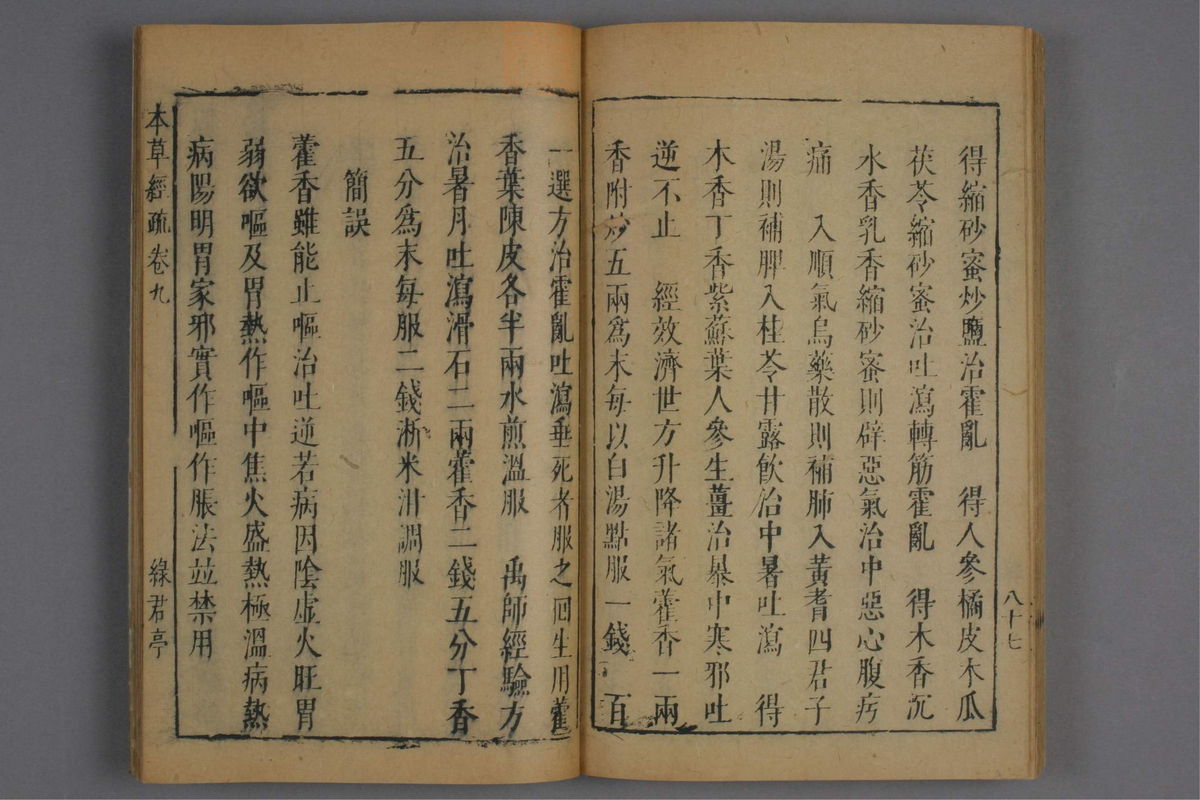 得縮砂蜜炒鹽治霍亂　得人參橘皮木瓜
茯苓縮砂蜜治吐瀉轉筋霍亂　得木香沉
水香乳香縮砂蜜則辟惡氣治中惡心腹㽱
痛　入順氣烏藥散則補肺入黃耆四君子
湯則補脾入桂苓甘露飲治中暑吐瀉　得
木香丁香紫蘇葉人參生薑治暴中寒邪吐
逆不止　經效濟世方升降諸氣藿香一兩
香附炒五兩爲末每以白湯點服一錢　百
八十七
一選方治霍亂吐瀉垂死者服之回生用藿
香葉陳皮各半兩水煎溫服　禹師經驗方
治暑月吐瀉滑石二兩藿香二錢五分丁香
五分爲末每服二錢淅米泔調服
簡誤
藿香雖能止嘔治吐逆若病因陰虛火旺胃
弱欲嘔及胃熱作嘔中焦火盛熱極溫病熱
病陽明胃家邪實作嘔作脹法並禁用
本草經疏　卷九　綠君亭